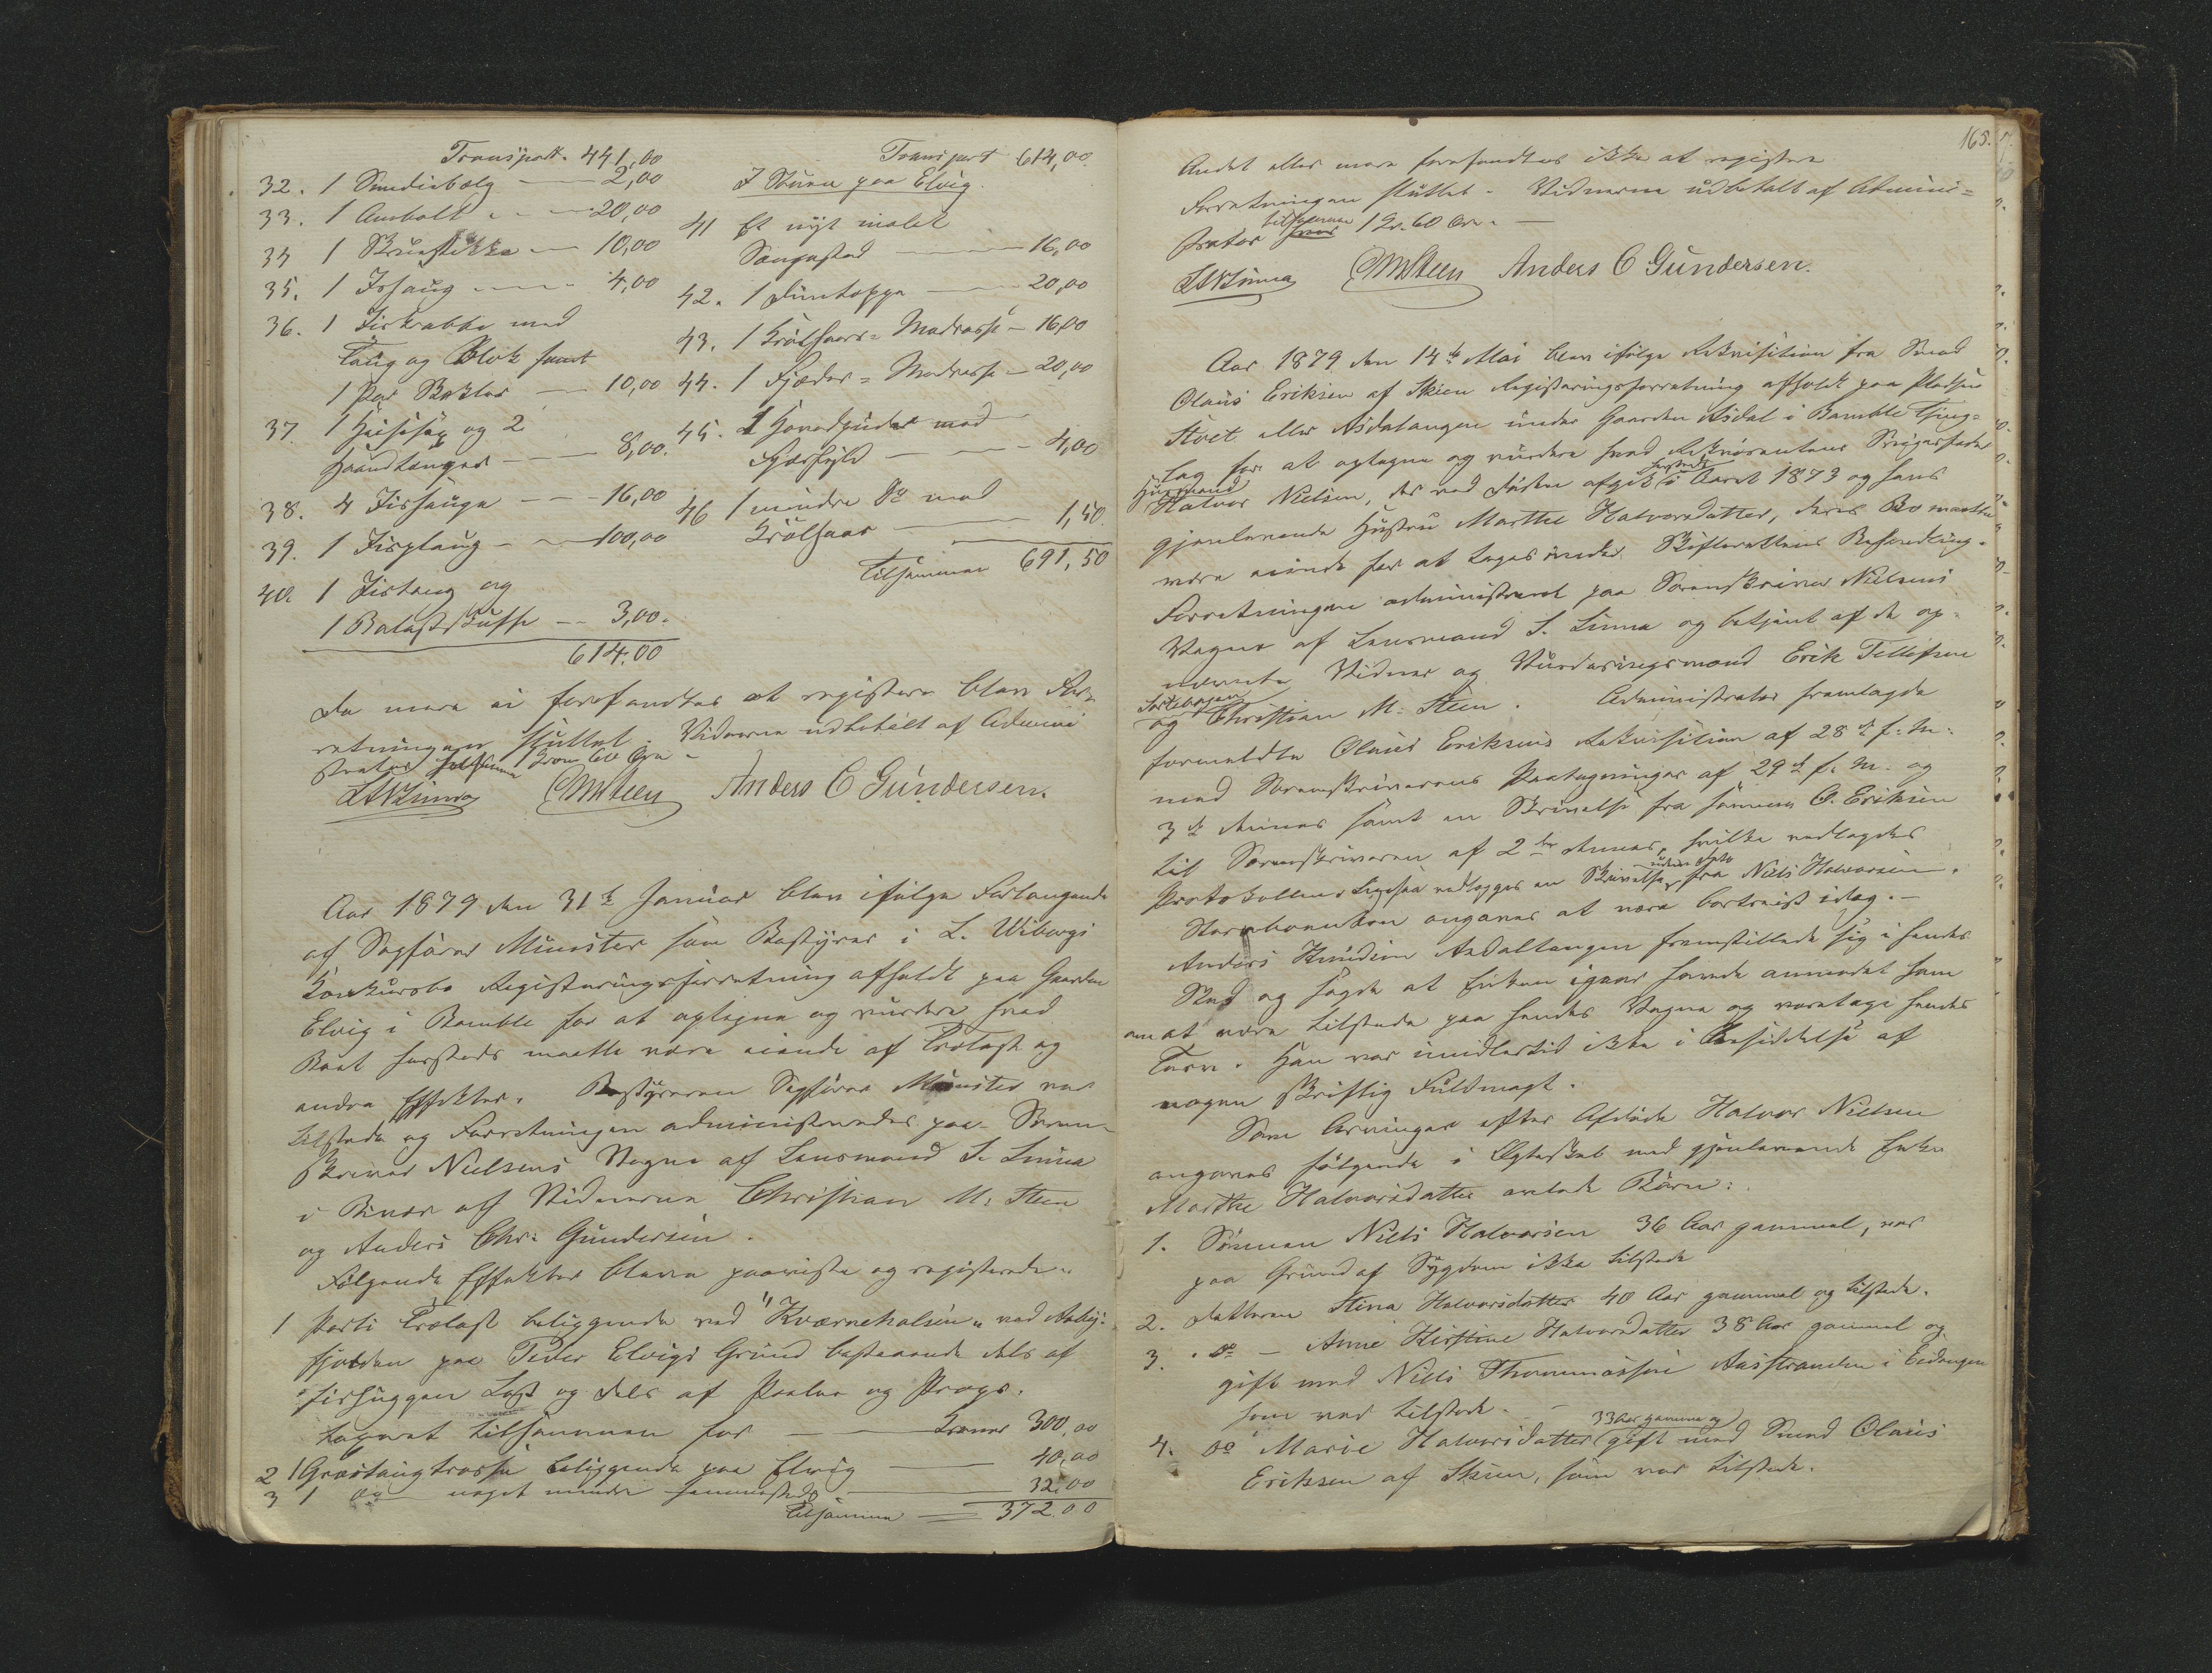 Transport. 441,00
32. 1 Smediebælg — 2,00
33. 1 Ambolt — 20,00
34 1 Skruestikke — 10,00
35. 1 Ishaug — 4,00
36. 1 med
Taug og Blok samt
1 Par — 10,00
37 1 og 2
Haandtænger — 8,00.
38. 4 — 16,00
39. 1 — 100,00
40. 1 og
1 Balastskuffe — 3,00.
614.00
Transport 614,00.
I Stuen paa Elvig.
41 Et nyt malet
Sengested — 16,00
42. 1 — 20,00
43. 1 Krølhaars-Madrasse — 16,00
44. 1 Fjæder-Madrasse — 20,00
45. 1 Hovedpude med
Fjærfyld — 4,00
46 1 mindre Do med
Krølhaar — 1,50.
Tilsammen 691,50
Da mere ei forefandtes at registere blev For-
retningen sluttet. Vidnerne udbetalt af Admini
strator tilsammen 1 Krone 60 Øre —
S. Linna CMSteen Anders C Gundersen.
Aar 1879 den 31te Januar blev ifølge Forlangende
af Sagfører Münster som Bestyrer i L. Wiborgs
Konkursbo Registeringsforretning afholdt paa Gaarden
Elvig i Bamble for at optegne og vurdere hvad
Boet hersteds maatte være eiende af Trælast og
andre Effekter. Bestyreren Sagfører Münster var
tilstede og Forretningen administreredes paa Soren-
skriver Nielsens Vegne af Lensmand S. Linna
i Overvær af Vidnerne Christian M. Steen
og Anders Chr. Gundersen.
Følgende Effekter bleve paaviste og registerede:
1 Parti Trælast beliggende ved "Kværnehalsen" ved Aaby-
fjorden paa Peder Elvigs Grund bestaaende dels af
firhuggen Last og dels af Pæler og Props.
taxeret tilsammen for — Kroner 300,00
2 1 Græstaugtrosse beliggende paa Elvig — 40,00
3 1 Do noget mindre sammesteds — 32.00
Tilsammen — 372.00
165.
Andet eller mere forefandtes ikke at registere
Forretningen sluttet. Vidnerne udbetalt af Admini-
strator tilsammen 1 Kr. 60 Øre. —
S. Linna CMSteen Anders C Gundersen.
Aar 1879 den 14de Mai blev ifølge Rekvisition fra Smed
Olaus Eriksen af Skien Registeringsforretning afholdt paa Pladsen
Stoet eller Asdaltangen under Gaarden Asdal i Bamble Thing-
lag for at optegne og vurdere hvad Rekvirentens Svigerfader
Husmand Halvor Nielsen, der ved Døden afgik hersteds i Aaret 1873 og hans
gjenlevende Hustru Marthe Halvorsdatter, deres Bo maatte
være eiende for at tages under Skifterettens Behandling.
Forretningen administreret paa Sorenskriver Nielsens
Vegne af Lensmand S. Linna og betjent af de op-
nævnte Vidner og Vurderingsmænd Erik Tellefsen
og Christian M. Steen. Administrator fremlagde
formeldte Olaus Eriksens Rekvisition af 28de f. M.
med Sorenskriverens Paategninger af 29de f. M. og
3de dennes samt en Skrivelse fra samme O. Eriksen
til Sorenskriveren af 2den dennes, hvilke vedlagdes
Protokollen. Ligesaa vedlægges en Skrivelse uden Dato fra Niels Halvorsen.
Stervboenken angaves at være bortreist idag. —
Anders Knudsen Asdaltangen fremstillede sig i hendes
Sted og sagde at Enken igaar havde anmodet ham
om at være tilstede paa hendes Vegne og varetage hendes
Tarv. Han var imidlertid ikke i Besiddelse af
nogen skriftlig Fuldmagt.
Som Arvinger efter Afdøde Halvor Nielsen
angaves følgende i Ægteskab med gjenlevende Enke
Marthe Halvorsdatter avlede Børn:
1. Sønnen Niels Halvorsen 36 Aar gammel, var
paa Grund af Sygdom ikke tilstede
2. Datteren Stina Halvorsdatter 40 Aar gammel og tilstede.
3. Do — Anne Kirstine Halvorsdatter 38 Aar gammel og
gift med Niels Thommassen Aasstranden i Eidanger
som var tilstede. —
4. Do Marie Halvorsdatter 33 Aar gammel og gift med Smed Olaus
Eriksen af Skien, som var tilstede.